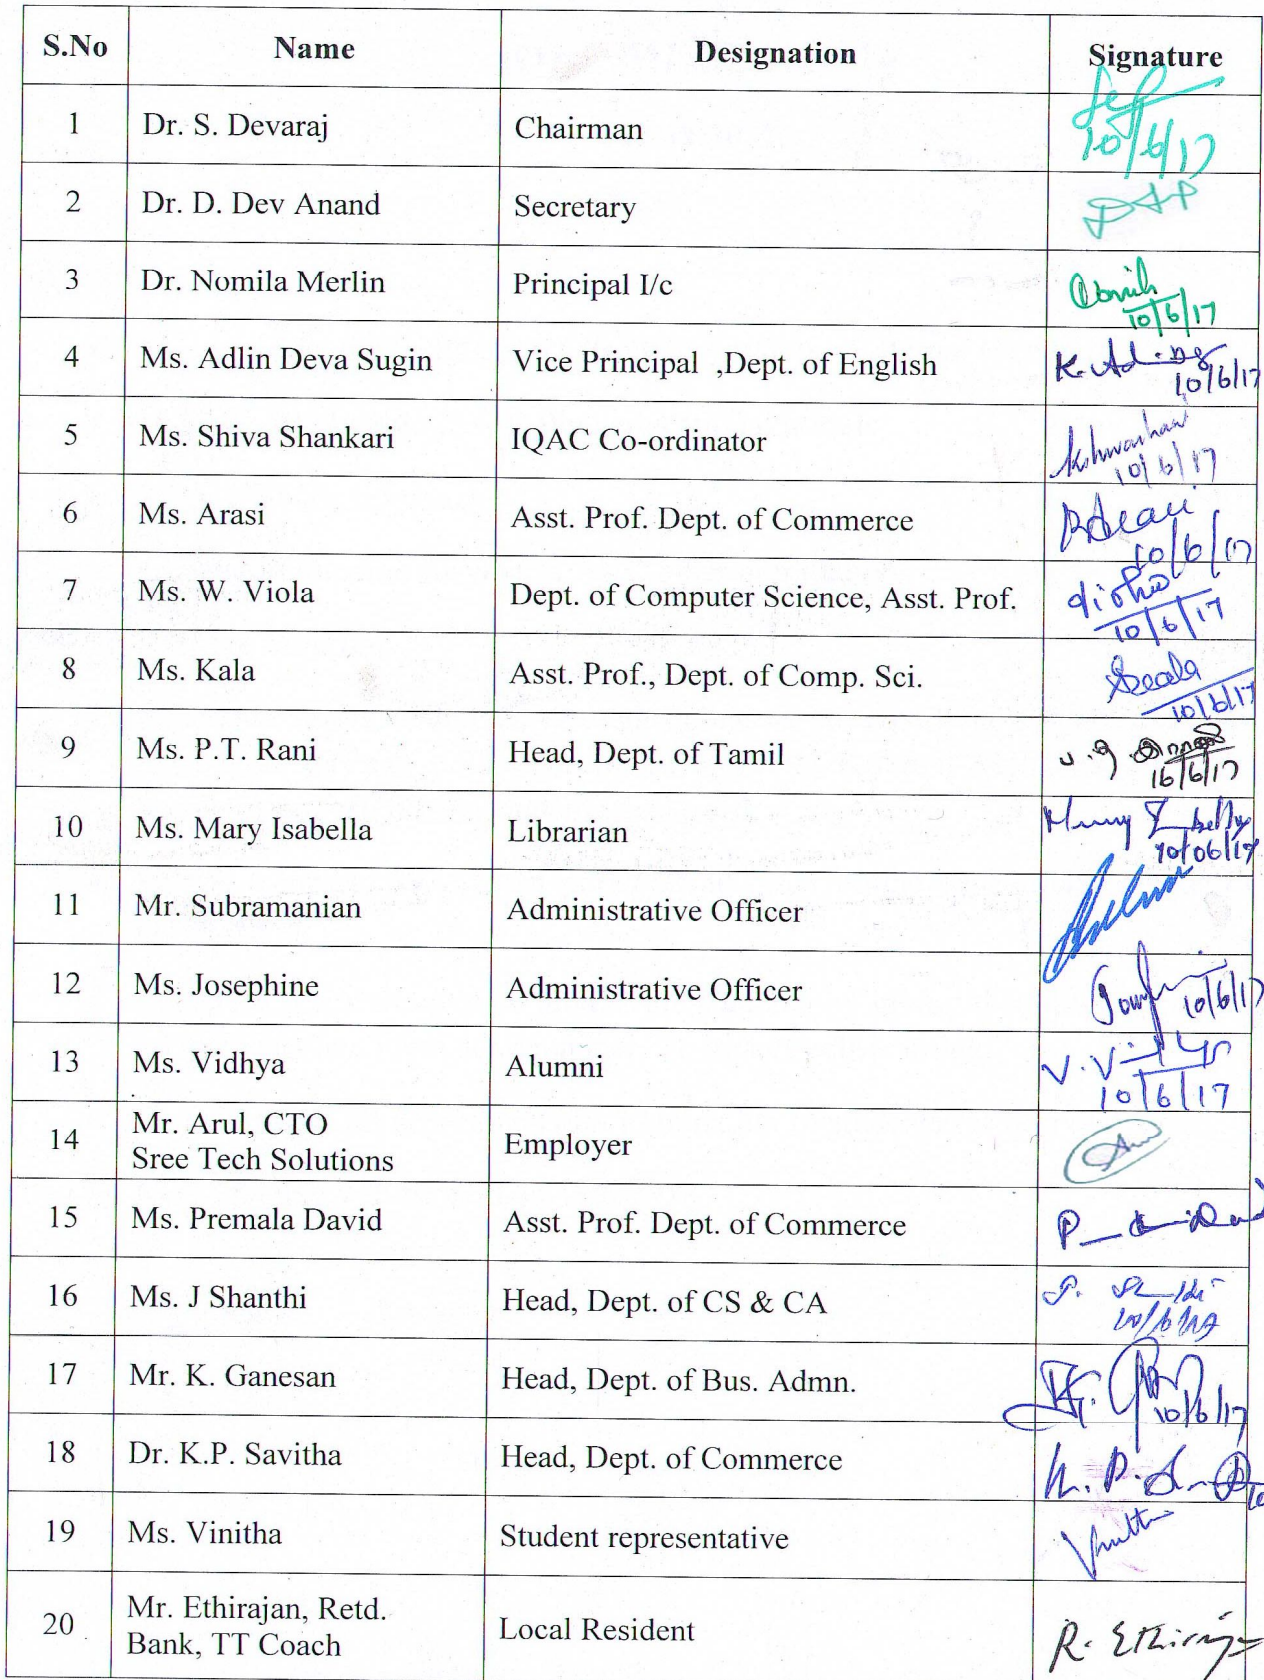 S.No Name Designation Signature
1 Dr. S. Devaraj Chairman
10/6/17
2 Dr. D. Dev Anand Secretary
3 Dr. Nomila Merlin Principal I/c
10/6/17
4 Ms. Adlin Deva Sugin Vice Principal ,Dept. of English
10/6/17
5 Ms. Shiva Shankari IQAC Co-ordinator
10/6/17
6 Ms. Arasi Asst. Prof. Dept. of Commerce
10/6/17
7 Ms. W. Viola Dept. of Computer Science, Asst. Prof.
10/6/17
8 Ms. Kala Asst. Prof., Dept. of Comp. Sci.
10/6/17
9 Ms. P.T. Rani Head, Dept. of Tamil
16/6/17
10 Ms. Mary Isabella Librarian
10/06/17
11 Mr. Subramanian Administrative Officer
12 Ms. Josephine Administrative Officer
10/6/17
13 Ms. Vidhya Alumni
10/6/17
14 Mr. Arul, CTO
Sree Tech Solutions Employer
15 Ms. Premala David Asst. Prof. Dept. of Commerce
16 Ms. J Shanthi Head, Dept. of CS & CA
17 Mr. K. Ganesan Head, Dept. of Bus. Admn.
10/6/17
18 Dr. K.P. Savitha Head, Dept. of Commerce
19 Ms. Vinitha Student representative
20 Mr. Ethirajan, Retd.
Bank, TT Coach Local Resident